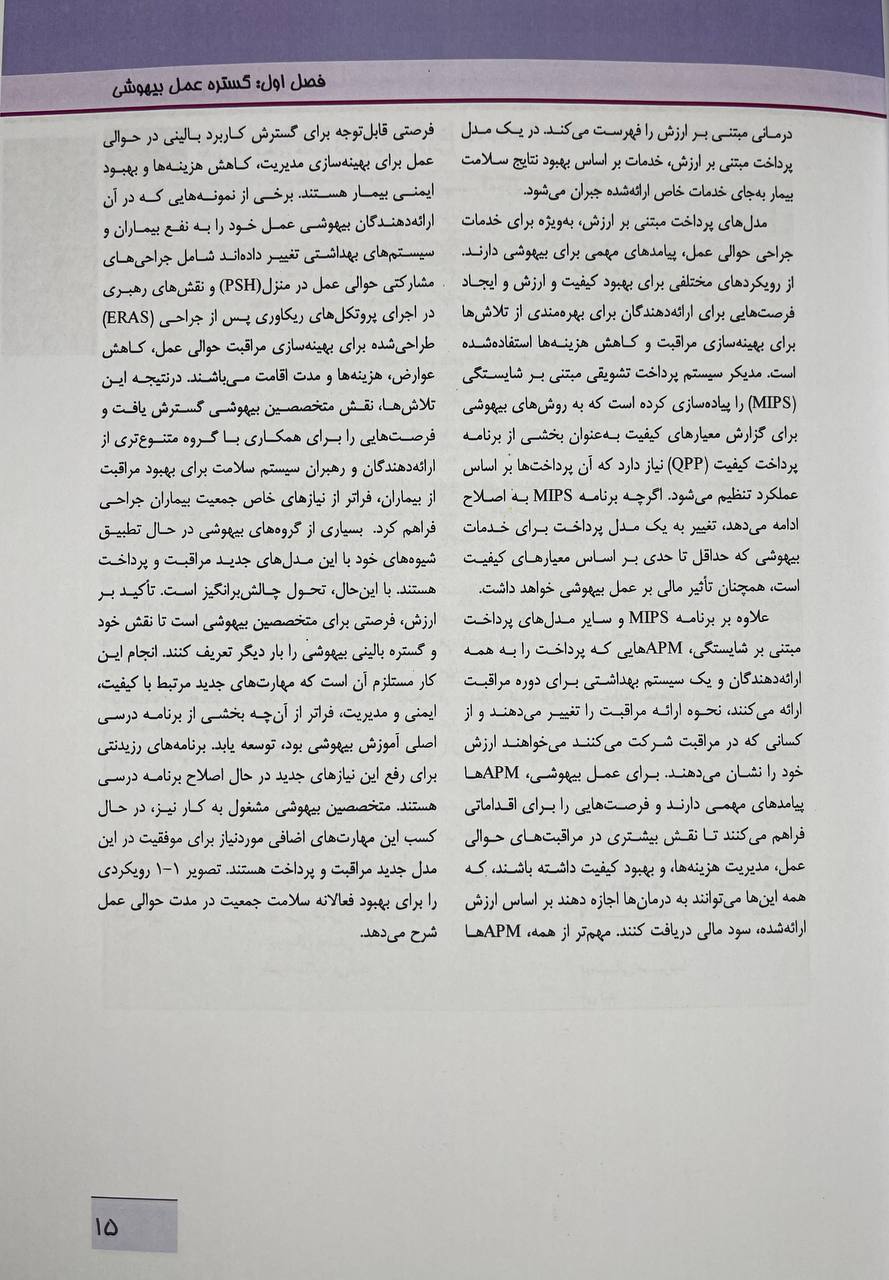 فصل اول: گستره عمل بیهوشی
درمانی مبتنی بر ارزش را فهرست می‌کند. در یک مدل
پرداخت مبتنی بر ارزش، خدمات بر اساس بهبود نتایج سلامت
بیمار به‌جای خدمات خاص ارائه‌شده جبران می‌شود.
مدل‌های پرداخت مبتنی بر ارزش، به‌ویژه برای خدمات
جراحی حوالی عمل، پیامدهای مهمی برای بیهوشی دارند.
از رویکردهای مختلفی برای بهبود کیفیت و ارزش و ایجاد
فرصت‌هایی برای ارائه‌دهندگان برای بهره‌مندی از تلاش‌ها
برای بهینه‌سازی مراقبت و کاهش هزینه‌ها استفاده‌شده
است. مدیکر سیستم پرداخت تشویقی مبتنی بر شایستگی
(MIPS) را پیاده‌سازی کرده است که به روش‌های بیهوشی
برای گزارش معیارهای کیفیت به‌عنوان بخشی از برنامه
پرداخت کیفیت (QPP) نیاز دارد که آن پرداخت‌ها بر اساس
عملکرد تنظیم می‌شود. اگرچه برنامه MIPS به اصلاح
ادامه می‌دهد، تغییر به یک مدل پرداخت برای خدمات
بیهوشی که حداقل تا حدی بر اساس معیارهای کیفیت
است، همچنان تأثیر مالی بر عمل بیهوشی خواهد داشت.
علاوه بر برنامه MIPS و سایر مدل‌های پرداخت
مبتنی بر شایستگی، APMهایی که پرداخت را به همه
ارائه‌دهندگان و یک سیستم بهداشتی برای دوره مراقبت
ارائه می‌کنند، نحوه ارائه مراقبت را تغییر می‌دهند و از
کسانی که در مراقبت شرکت می‌کنند می‌خواهند ارزش
خود را نشان می‌دهند. برای عمل بیهوشی، APMها
پیامدهای مهمی دارند و فرصت‌هایی را برای اقداماتی
فراهم می‌کنند تا نقش بیشتری در مراقبت‌های حوالی
عمل، مدیریت هزینه‌ها، و بهبود کیفیت داشته باشند، که
همه این‌ها می‌توانند به درمان‌ها اجازه دهند بر اساس ارزش
ارائه‌شده، سود مالی دریافت کنند. مهم‌تر از همه، APMها
فرصتی قابل‌توجه برای گسترش کاربرد بالینی در حوالی
عمل برای بهینه‌سازی مدیریت، کاهش هزینه‌ها و بهبود
ایمنی بیمار هستند. برخی از نمونه‌هایی که در آن
ارائه‌دهندگان بیهوشی عمل خود را به نفع بیماران و
سیستم‌های بهداشتی تغییر داده‌اند شامل جراحی‌های
مشارکتی حوالی عمل در منزل(PSH) و نقش‌های رهبری
در اجرای پروتکل‌های ریکاوری پس از جراحی (ERAS)
طراحی‌شده برای بهینه‌سازی مراقبت حوالی عمل، کاهش
عوارض، هزینه‌ها و مدت اقامت می‌باشند. درنتیجه این
تلاش‌ها، نقش متخصصین بیهوشی گسترش یافت و
فرصت‌هایی را برای همکاری با گروه متنوع‌تری از
ارائه‌دهندگان و رهبران سیستم سلامت برای بهبود مراقبت
از بیماران، فراتر از نیازهای خاص جمعیت بیماران جراحی
فراهم کرد. بسیاری از گروه‌های بیهوشی در حال تطبیق
شیوه‌های خود با این مدل‌های جدید مراقبت و پرداخت
هستند. با این‌حال، تحول چالش‌برانگیز است. تأکید بر
ارزش، فرصتی برای متخصصین بیهوشی است تا نقش خود
و گستره بالینی بیهوشی را بار دیگر تعریف کنند. انجام این
کار مستلزم آن است که مهارت‌های جدید مرتبط با کیفیت،
ایمنی و مدیریت، فراتر از آن‌چه بخشی از برنامه درسی
اصلی آموزش بیهوشی بود، توسعه یابد. برنامه‌های رزیدنتی
برای رفع این نیازهای جدید در حال اصلاح برنامه درسی
هستند. متخصصین بیهوشی مشغول به کار نیز، در حال
کسب این مهارت‌های اضافی موردنیاز برای موفقیت در این
مدل جدید مراقبت و پرداخت هستند. تصویر ۱-۱ رویکردی
را برای بهبود فعالانه سلامت جمعیت در مدت حوالی عمل
شرح می‌دهد.
۱۵